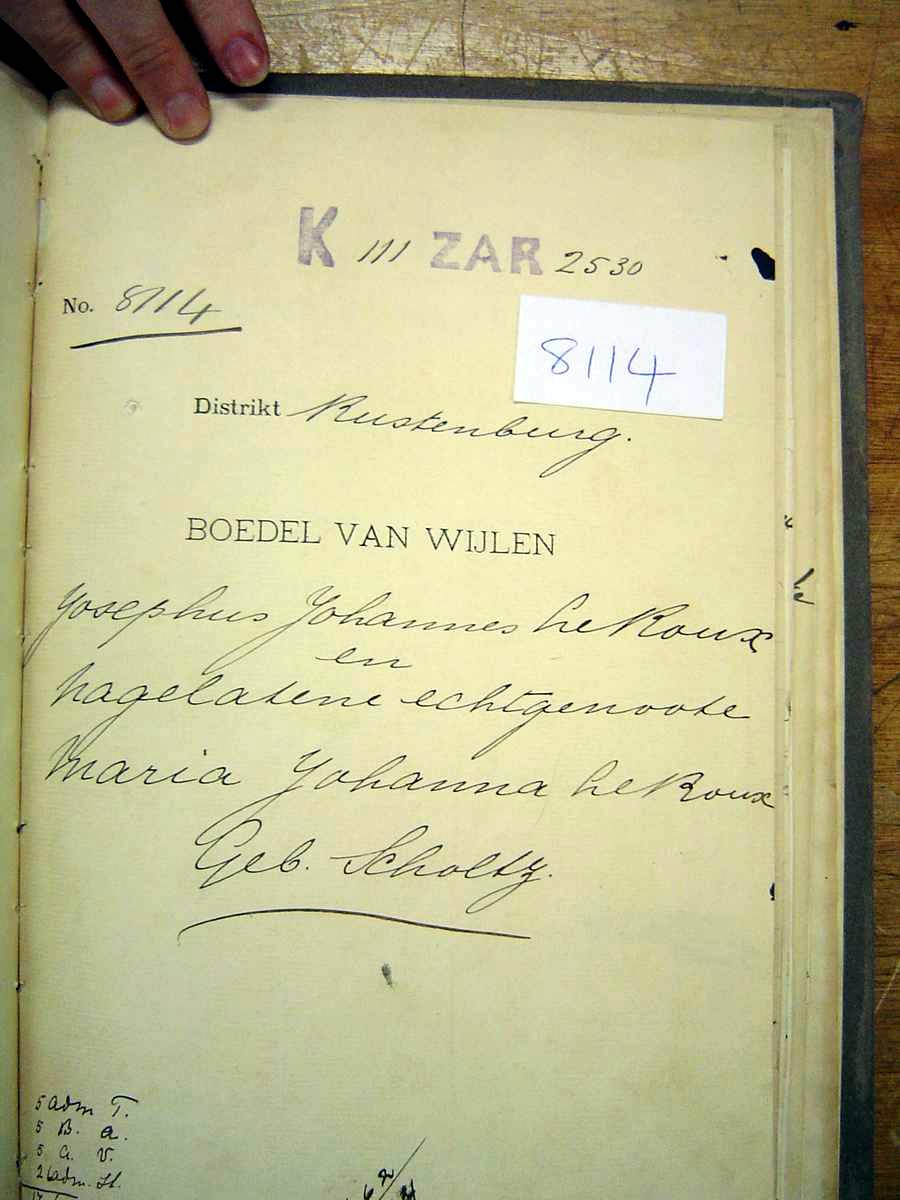 K 111 ZAR 2530
No. 8114
8114
Distrikt Rustenburg.
BOEDEL VAN WIJLEN
Josephus Johannes le Roux
en
nagelatene echtgenoote
Maria Johanna le Roux
Geb. Scholtz.
5 adm T.
5 B. a.
5 a. V.
2 adm. St.